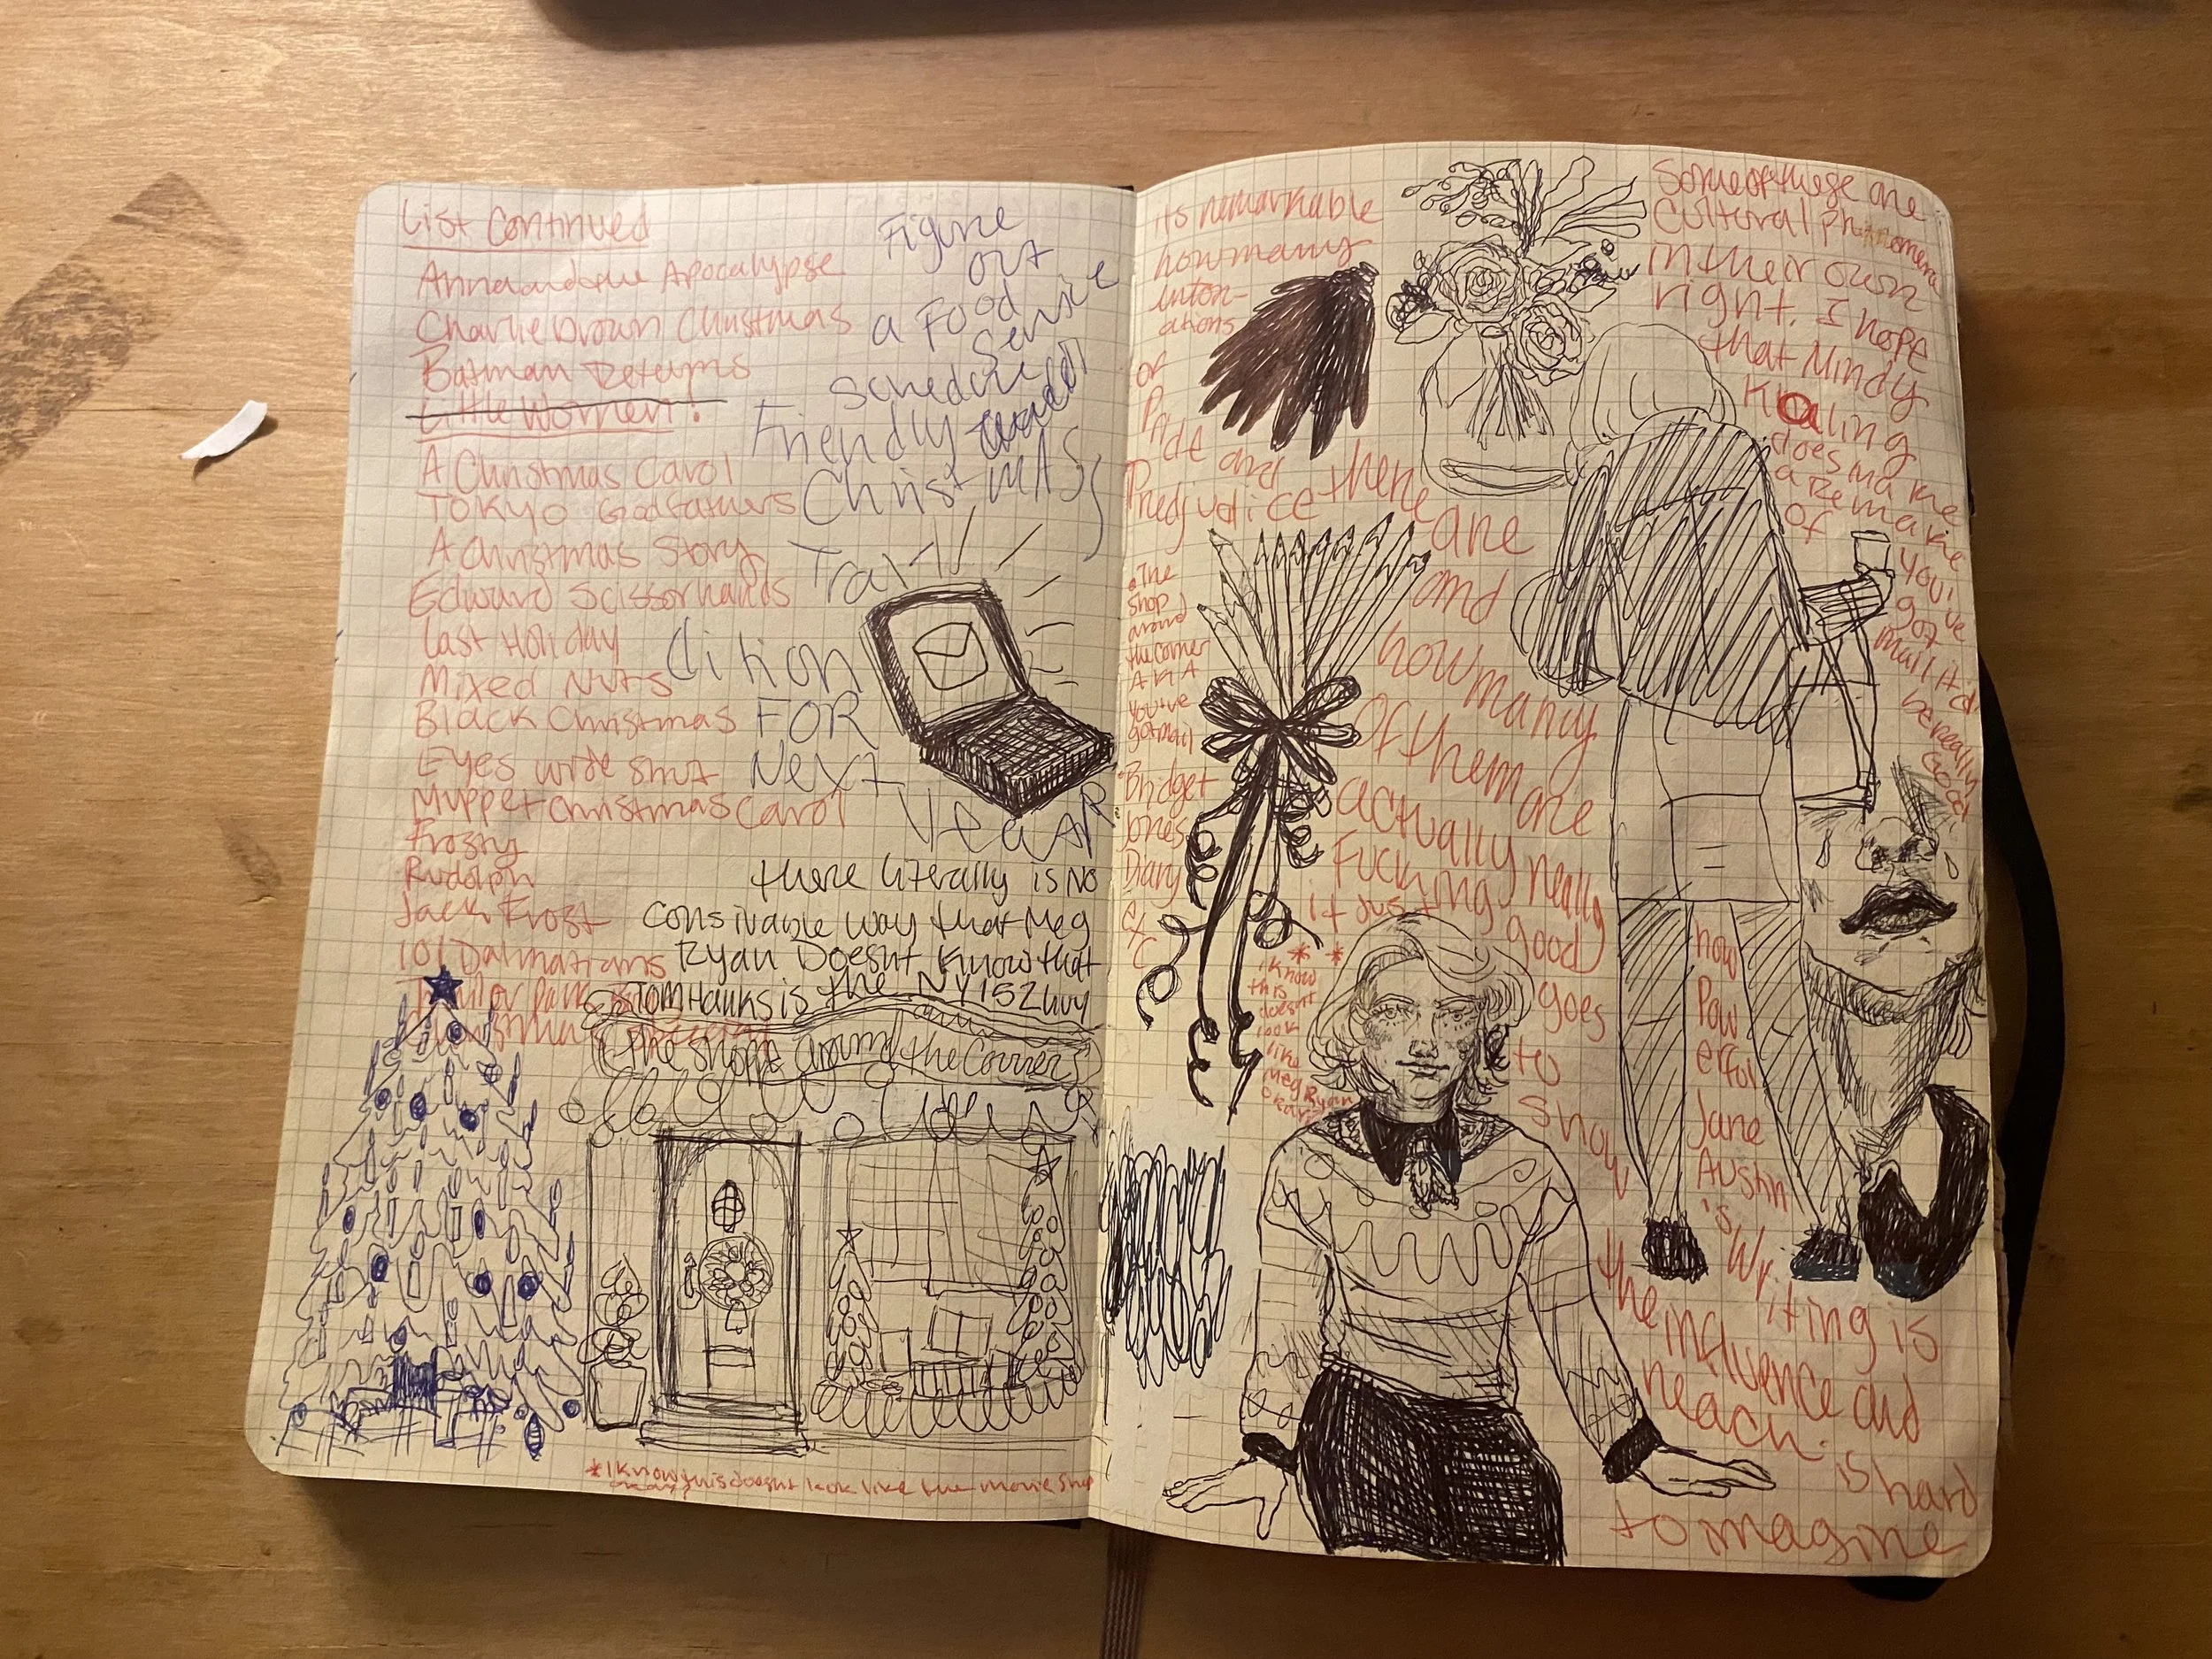 List Continued
Anna and the Apocalypse
Charlie brown Christmas
Batman Returns
Little Women!
A Christmas Carol
Tokyo Godfathers
A Christmas Story
Edward Scissorhands
Last Holiday
Mixed Nuts
Black Christmas
Eyes wide Shut
Muppet Christmas Carol
Frosty
Rudolph
Jack Frost
101 Dalmatians
Figure
out
a Food
Service
Schedule
Friendly
ChristMAS
FOR
Next
YeaR
there literally is NO
Consivable way that Meg
Ryan Doesnt Know that
TOM Hanks is the NY152 Guy
the Shop around the Corner
*I Know this doesnt look like the movie Shop
its remarkable
how many
inton-
ations
of
Pride and
Predjudice there
are
and
how many
Of them are
actually really
Fucking good
it Just
goes
to
Show
how
Pow
erful
Jane
Austin
's Writing is
the influence and
reach is hard
to imagine
•The
Shop
around
the corner
AKA
you've
got mail
•Bridget
Jones
Diary
etc
* *
I know
this
doesnt
look
like
Meg Ryan
Okay
Some of these are
Cultural phenomena
in their own
right. I hope
that Mindy
Kaling
does make
a Remake
of
you've
got
mail it'd
be really
Good